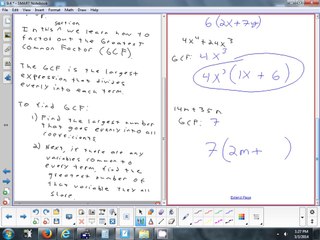 9.4 * - SMART Notebook
section
In this ^ we learn how to
factor out the Greatest
Common Factor (GCF)
The GCF is the largest
expression that divides
evenly into each term.
To find GCF:
1) Find the largest number
that goes evenly into all
coefficients
2) Next, if there are any
variables common to
every term, find the
greatest number of
that variable they all
share
6 (2x+7y)
4x⁴ + 24x³
GCF: 4x³
4x³ (1x + 6)
14m + 35n
GCF: 7
7 (2m+ )
Extend Page
3:27 PM
3/5/2014